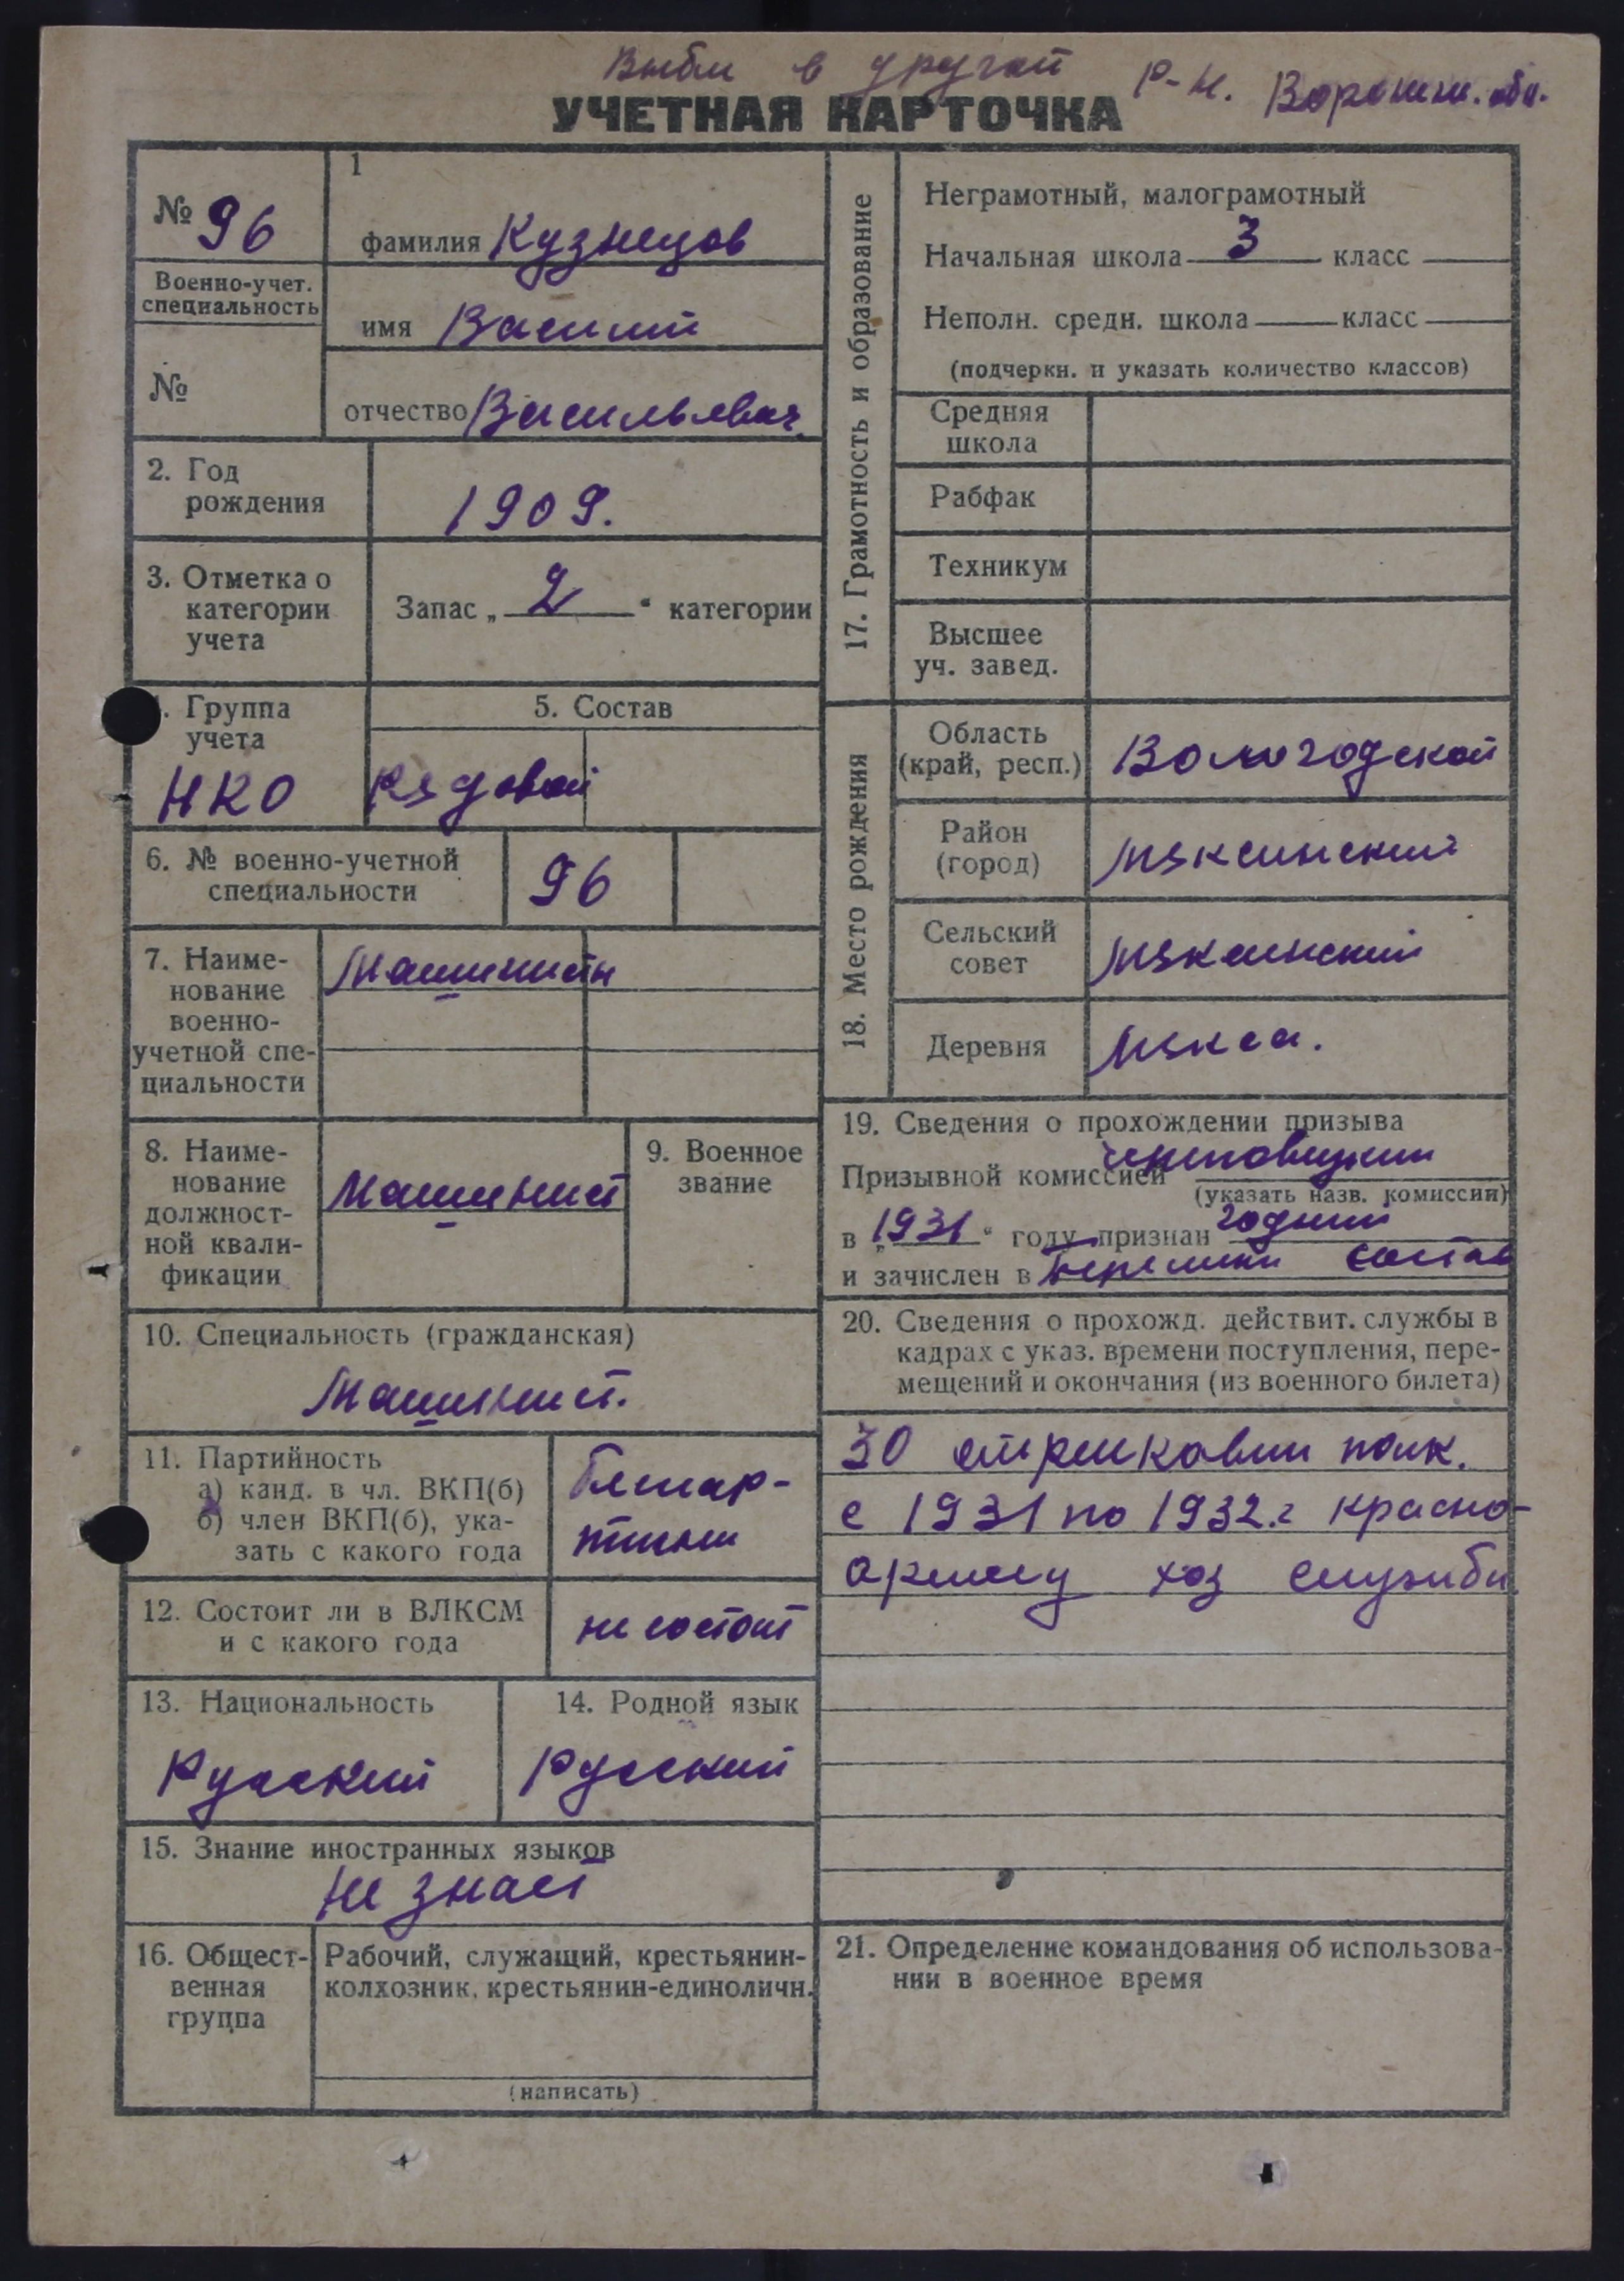 Выбыл в другой р-н. Ворошил. обл.
УЧЕТНАЯ КАРТОЧКА
№ 96
Военно-учет.
специальность
№
1
фамилия Кузнецов
имя Василий
отчество Васильевич
2. Год
рождения
1909.
3. Отметка о
категории
учета
Запас „ 2 “ категории
. Группа
учета
НКО
5. Состав
Рядовой
6. № военно-учетной
специальности
96
7. Наиме-
нование
военно-
учетной спе-
циальности
Машинисты
8. Наиме-
нование
должност-
ной квали-
фикации
Машинист
9. Военное
звание
10. Специальность (гражданская)
Машинист.
11. Партийность
а) канд. в чл. ВКП(б)
б) член ВКП(б), ука-
зать с какого года
Беспар-
тийный
12. Состоит ли в ВЛКСМ
и с какого года
не состоит
13. Национальность
Русский
14. Родной язык
Русский
15. Знание иностранных языков
Не знает
16. Общест-
венная
группа
Рабочий, служащий, крестьянин-
колхозник, крестьянин-единоличн.
(написать)
17. Грамотность и образование
Неграмотный, малограмотный
Начальная школа 3 класс
Неполн. средн. школа класс
(подчеркн. и указать количество классов)
Средняя
школа
Рабфак
Техникум
Высшее
уч. завед.
18. Место рождения
Область
(край, респ.)
Вологодской
Район
(город)
Мяксинский
Сельский
совет
Мяксинский
Деревня
Мякса.
19. Сведения о прохождении призыва
Призывной комиссией Череповецким
(указать назв. комиссии)
в „1931“ году признан годный
и зачислен в состав
20. Сведения о прохожд. действит. службы в
кадрах с указ. времени поступления, пере-
мещений и окончания (из военного билета)
30 стрелковый полк.
с 1931 по 1932.г красно-
армеец хоз службы.
21. Определение командования об использова-
нии в военное время